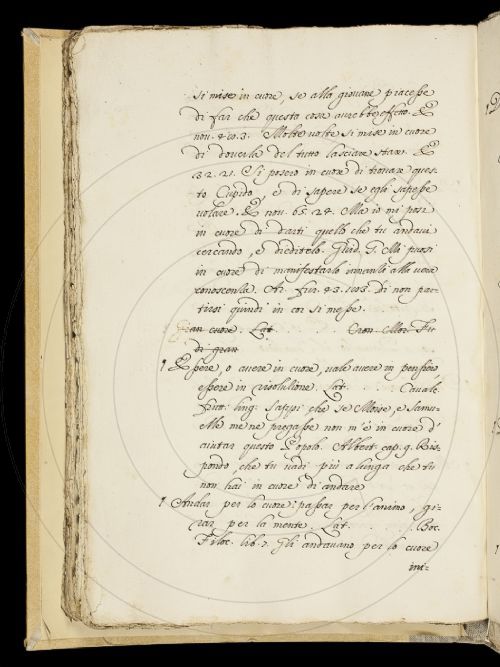 si mise in cuore, se alla giovane piacesse
di far che questa cosa avrebbe effetto. E
nov. 40.3. Molte volte si mise in cuore
di doverla del tutto lasciare stare. E
32.21. Si posero in cuore di trovare ques-
to Cupido, e di sapere se egli sapesse
volare. E nov. 65.24. Ma io mi posi
in cuore di darti quello che tu andavi
cercando, e dieditelo. Guid. G. Mi puosi
in cuore di manifestarlo innanti alla
conoscenza. Ar. Fur. 43. di non par-
tirsi quindi in cor si messe.
Gran cuore. Lat. . . . . Cron. Mor. Fu
di gran
¶ Essere, o avere in cuore, vale avere in pensiero
essere in risoluzione. Lat. . . . . Cavalc.
Frutt. ling. Sappi che se Moise, e Samu-
elle me ne pregasse non m'è in cuore d'
aiutar questo Popolo. Albert. cap. 9. Ris-
pondo che tu vadi più a lunga che tu
non hai in cuore di andare
¶ Andar per lo cuore: passar per l'animo, gi-
rar per la mente. Lat. . . . . Boc.
Filoc. lib. 7. Gli andavano per lo cuore